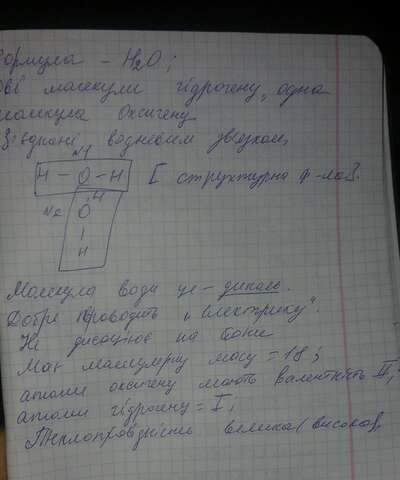 Формула – H₂O;
Дві молекули гідрогену, одна
молекула Оксигену
З'єднані водневим звязком,
N1
H – O – H [ структурна ф-ла].
N2 O H
H
Молекула води це – диполь.
Добре проводить „електрику".
Не дисоціює на йони
Має молекулярну масу = 18;
атоми оксигену мають валентність II,
атоми гідрогену = I;
Теплопровідність велика (висока),